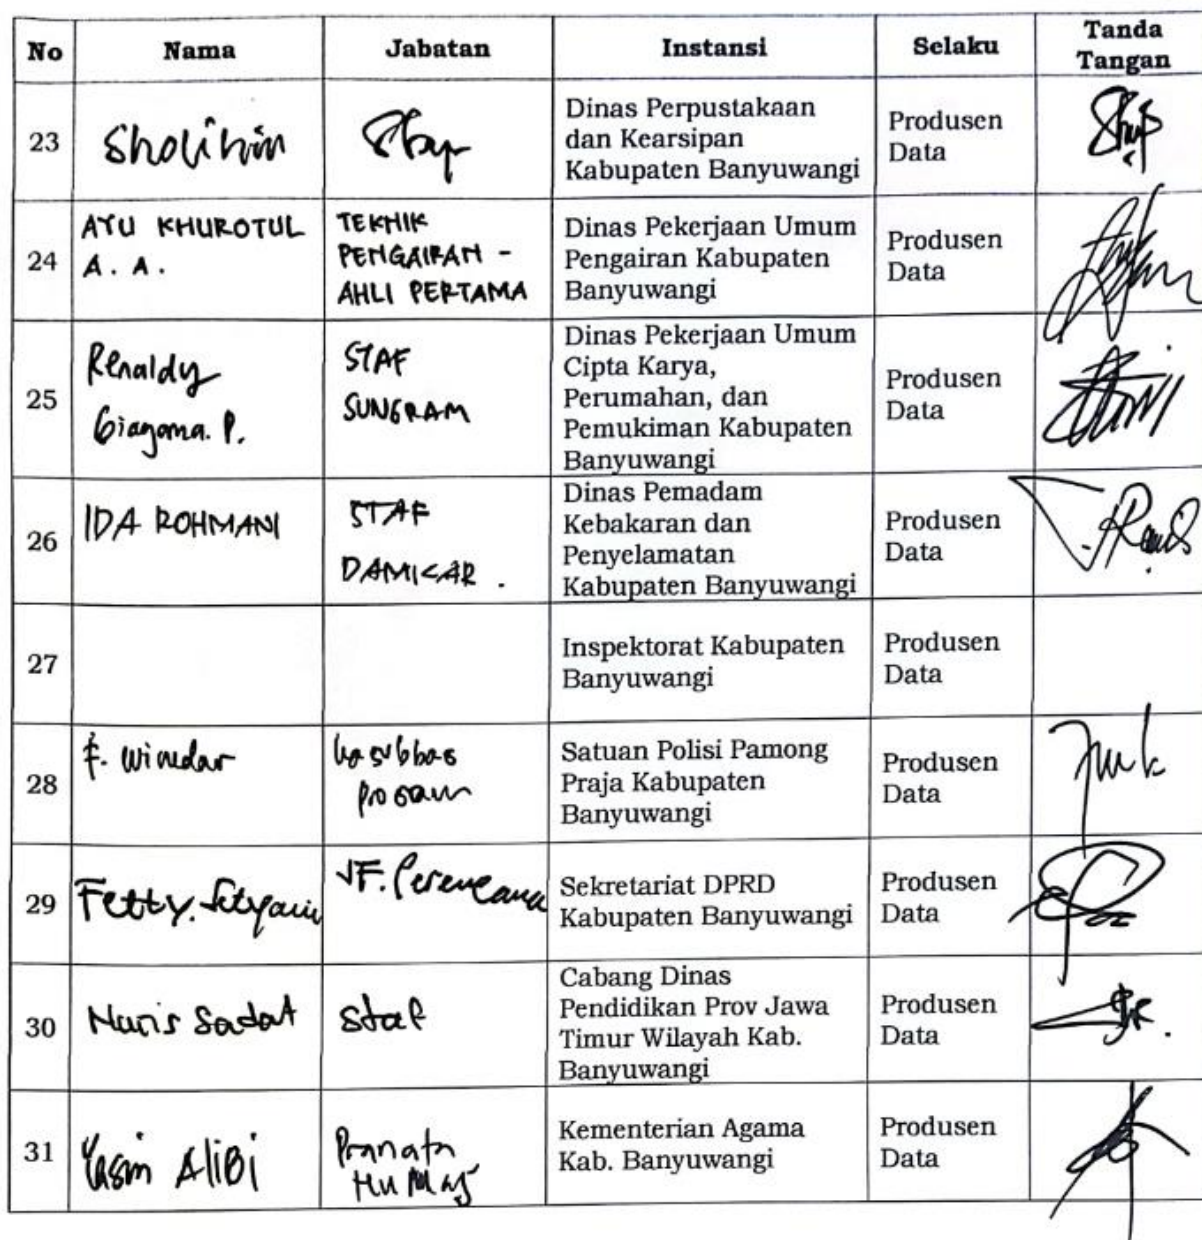 No Nama Jabatan Instansi Selaku Tanda Tangan
23 Sholihin Dinas Perpustakaan dan Kearsipan Kabupaten Banyuwangi Produsen Data
24 AYU KHUROTUL A. A. TEKNIK PENGAIRAN - AHLI PERTAMA Dinas Pekerjaan Umum Pengairan Kabupaten Banyuwangi Produsen Data
25 Renaldy Giagama. P. STAF SUNGRAM Dinas Pekerjaan Umum Cipta Karya, Perumahan, dan Pemukiman Kabupaten Banyuwangi Produsen Data
26 IDA ROHMANI STAF DAMKAR. Dinas Pemadam Kebakaran dan Penyelamatan Kabupaten Banyuwangi Produsen Data
27 Inspektorat Kabupaten Banyuwangi Produsen Data
28 F. Satuan Polisi Pamong Praja Kabupaten Banyuwangi Produsen Data
29 Fetty. JF. Perencana Sekretariat DPRD Kabupaten Banyuwangi Produsen Data
30 Sadat Staf Cabang Dinas Pendidikan Prov Jawa Timur Wilayah Kab. Banyuwangi Produsen Data
31 Yasin AliBi Pranata HuMas Kementerian Agama Kab. Banyuwangi Produsen Data